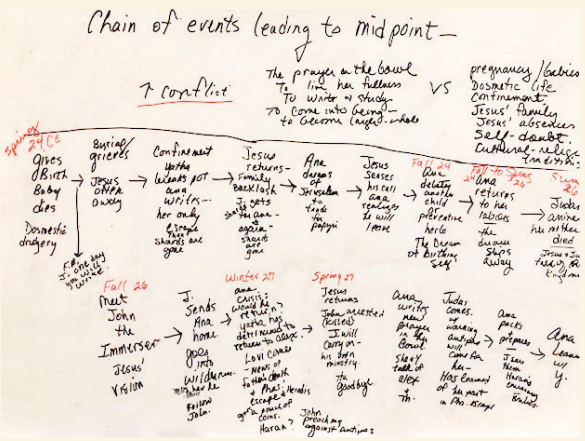 Chain of events leading to midpoint —
↑ conflict
The prayer in the bowl
To live her fullness
To write & study
To come into being —
to become
VS
pregnancy/babies
Dosmetic life
Confinement
Jesus' family
Jesus' absences
Self-doubt.
Spring
29 CE
gives
Birth
Baby
dies
Dosmestic
drugery
J. one day
you will
write.
Busied/
grieves
Jesus
often
away
Confinement
Yaltha
wants pot
ana
writes —
her only
escape
Then
shards are
gone
Jesus
returns —
Family
backlash
J. gets
shards
for ana —
again —
shards
are
gone
Ana
dreams
of
Jerusalem
to
trade
for
papyri
Jesus
senses
his call
ana
realizes
he will
leave
Fall 24
Ana
delays
another
child
preventive
herbs
The Dream
of Birthing
Self
Fall to Spring
24 26
ana
returns
to her
labors
the
dream
slips
away
26
Judas
her mother
died
Jesus + Ju
Kingdom
Fall 26
Meet
John
the
Immerser
Jesus'
vision
J.
Sends
Ana
home
goes
into
wilderness
tells her he
will
Follow
John.
Winter 27
ana
crisis:
would he
return?
yaltha has
determined to
return to alex.
Lavi comes
- news of
Father's death
& Phas.'
escape
gives pouch of
coins.
Herodis
Haran?
John
preaching
against antipas
Spring 27
Jesus
returns
John arrested
(killed)
I will
carry on —
his own
ministry.
the
goodbye
Ana
writes
new
prayer
in the
Bowl
She & Y
talk of
alex
&
th.
Judas
comes.
w/ warning
antipas
will
come for
her —
Has learned
of her part
in Phas. escape
Ana
packs
&
prepares
Jesus
Them
Haran's
Ana
Leaves
w/
Y.